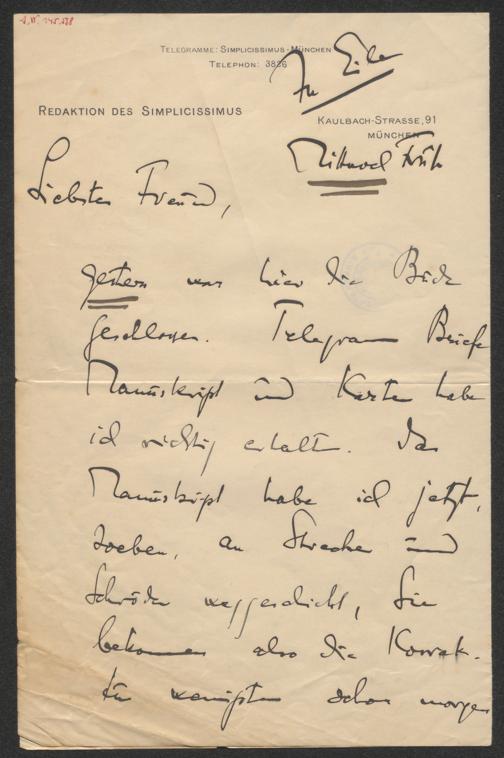 A.N. 245.578
TELEGRAMME: SIMPLICISSIMUS-MÜNCHEN
TELEPHON: 3836
In Eile
REDAKTION DES SIMPLICISSIMUS
KAULBACH-STRASSE, 91
MÜNCHEN
Mittwoch Früh
Liebster Freund,
gestern war hier die Bude
geschlossen. Telegram Briefe
Manuskript und Karten habe
ich richtig erhalten. Das
Manuskript habe ich jetzt,
soeben, an Strecker und
Schröder weggeschickt, Sie
bekommen also die Korrek-
tur wenigsten schon morgen